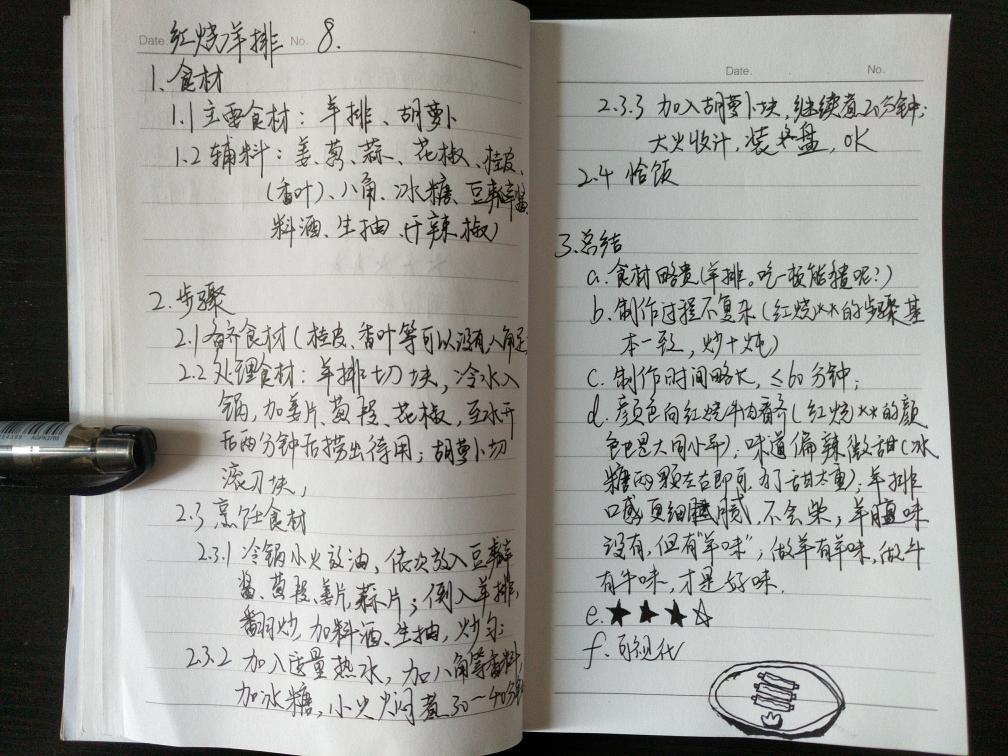 Date. 红烧羊排 No. 8.
1.食材
1.1 主要食材：羊排、胡萝卜
1.2 辅料：姜、葱、蒜、花椒、桂皮、
(香叶)、八角、冰糖、豆瓣酱
料酒、生抽、(干辣椒)
2.步骤
2.1 备齐食材(桂皮、香叶等可以没有,八角足
2.2 处理食材：羊排切块，冷水入
锅，加姜片、葱段、花椒，至水开
后两分钟后捞出待用；胡萝卜切
滚刀块，
2.3 烹饪食材
2.3.1 冷锅小火放油，依次放入豆瓣
酱、葱段、姜片、蒜片；倒入羊排，
翻炒，加料酒、生抽，炒匀；
2.3.2 加入适量热水，加八角等香料，
加冰糖，小火焖煮30-40分钟
Date. No.
2.3.3 加入胡萝卜块，继续煮20分钟；
大火收汁，装盘，OK
2.4 恰饭
3.总结
a.食材略贵(羊排。吃一顿能赚呢？)
b.制作过程不复杂(红烧**的步骤基
本一致，炒+炖)
c.制作时间略长，≤60分钟；
d.颜色向红烧牛肉看齐(红烧**的颜
色也是大同小异)，味道偏辣微甜(冰
糖两颗左右即可，多了甜太重)；羊排
口感更细腻，不会柴，羊膻味
没有，但有"羊味"；做羊有羊味，做牛
有牛味，才是好味.
e.★★★☆
f.可视化